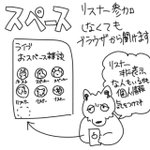 スペース
リスナー参加
しなくても
ブラウザから聞けます
ライブ
おスペース雑談
リスナー
非表示
なんもいる物
個人情報
気をつけて